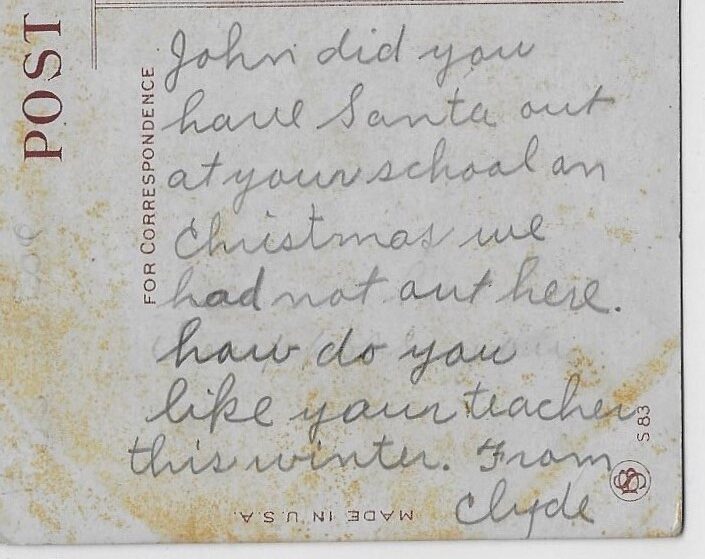 POST
FOR CORRESPONDENCE
John did you
have Santa out
at your school on
Christmas we
had not out here.
how do you
like your teacher
this winter. From
Clyde
S 83
MADE IN U.S.A.